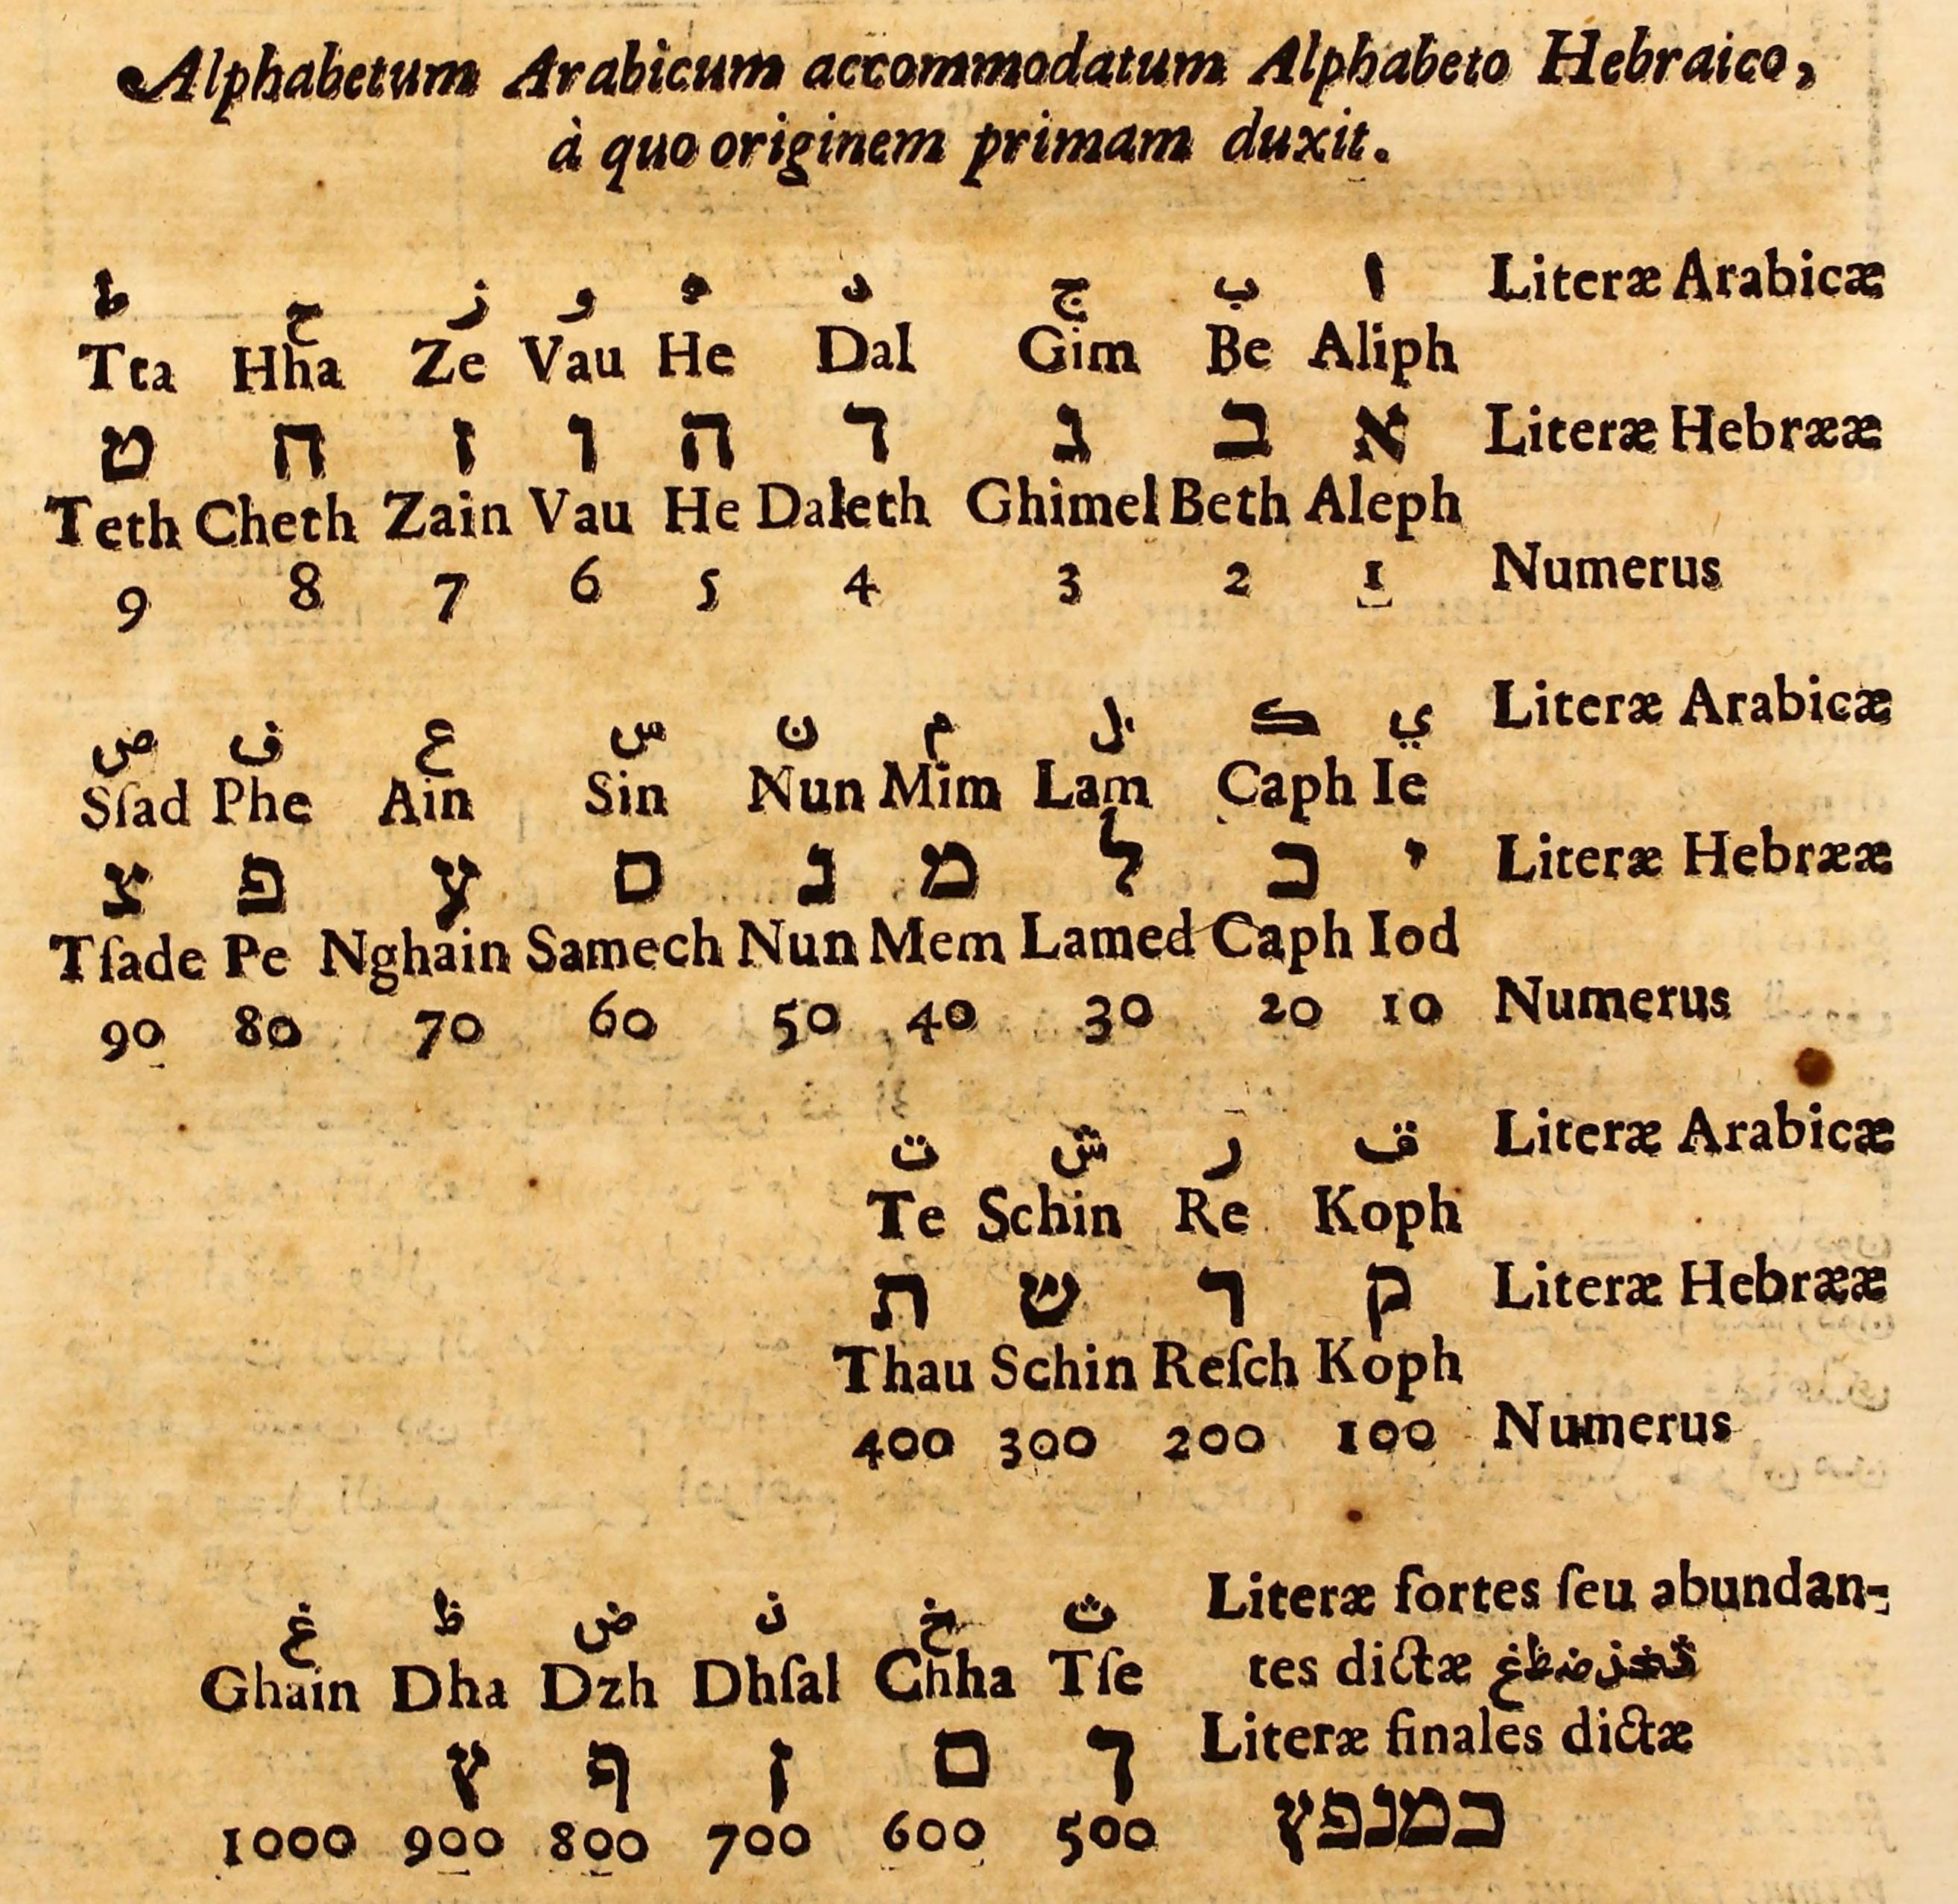 Alphabetum Arabicum accommodatum Alphabeto Hebraico,
à quo originem primam duxit.
ا ب ج د ه و ز ح ط Literæ Arabicæ
Tta Hha Ze Vau He Dal Gim Be Aliph
א ב ג ד ה ו ז ח ט Literæ Hebrææ
Teth Cheth Zain Vau He Daleth Ghimel Beth Aleph
9 8 7 6 5 4 3 2 1 Numerus
ي ك ل م ن س ع ف ص Literæ Arabicæ
Sſad Phe Ain Sin Nun Mim Lam Caph Ie
י כ ל מ נ ס ע פ צ Literæ Hebrææ
Tſade Pe Nghain Samech Nun Mem Lamed Caph Iod
90 80 70 60 50 40 30 20 10 Numerus
ق ر ش ت Literæ Arabicæ
Te Schin Re Koph
ק ר ש ת Literæ Hebrææ
Thau Schin Reſch Koph
400 300 200 100 Numerus
ث خ ذ ض ظ غ Literæ fortes ſeu abundan-
tes dictæ ثخذضظغ
Ghain Dha Dzh Dhſal Chha Tſe
ך ם ן ף ץ Literæ finales dictæ
כמנפץ
1000 900 800 700 600 500